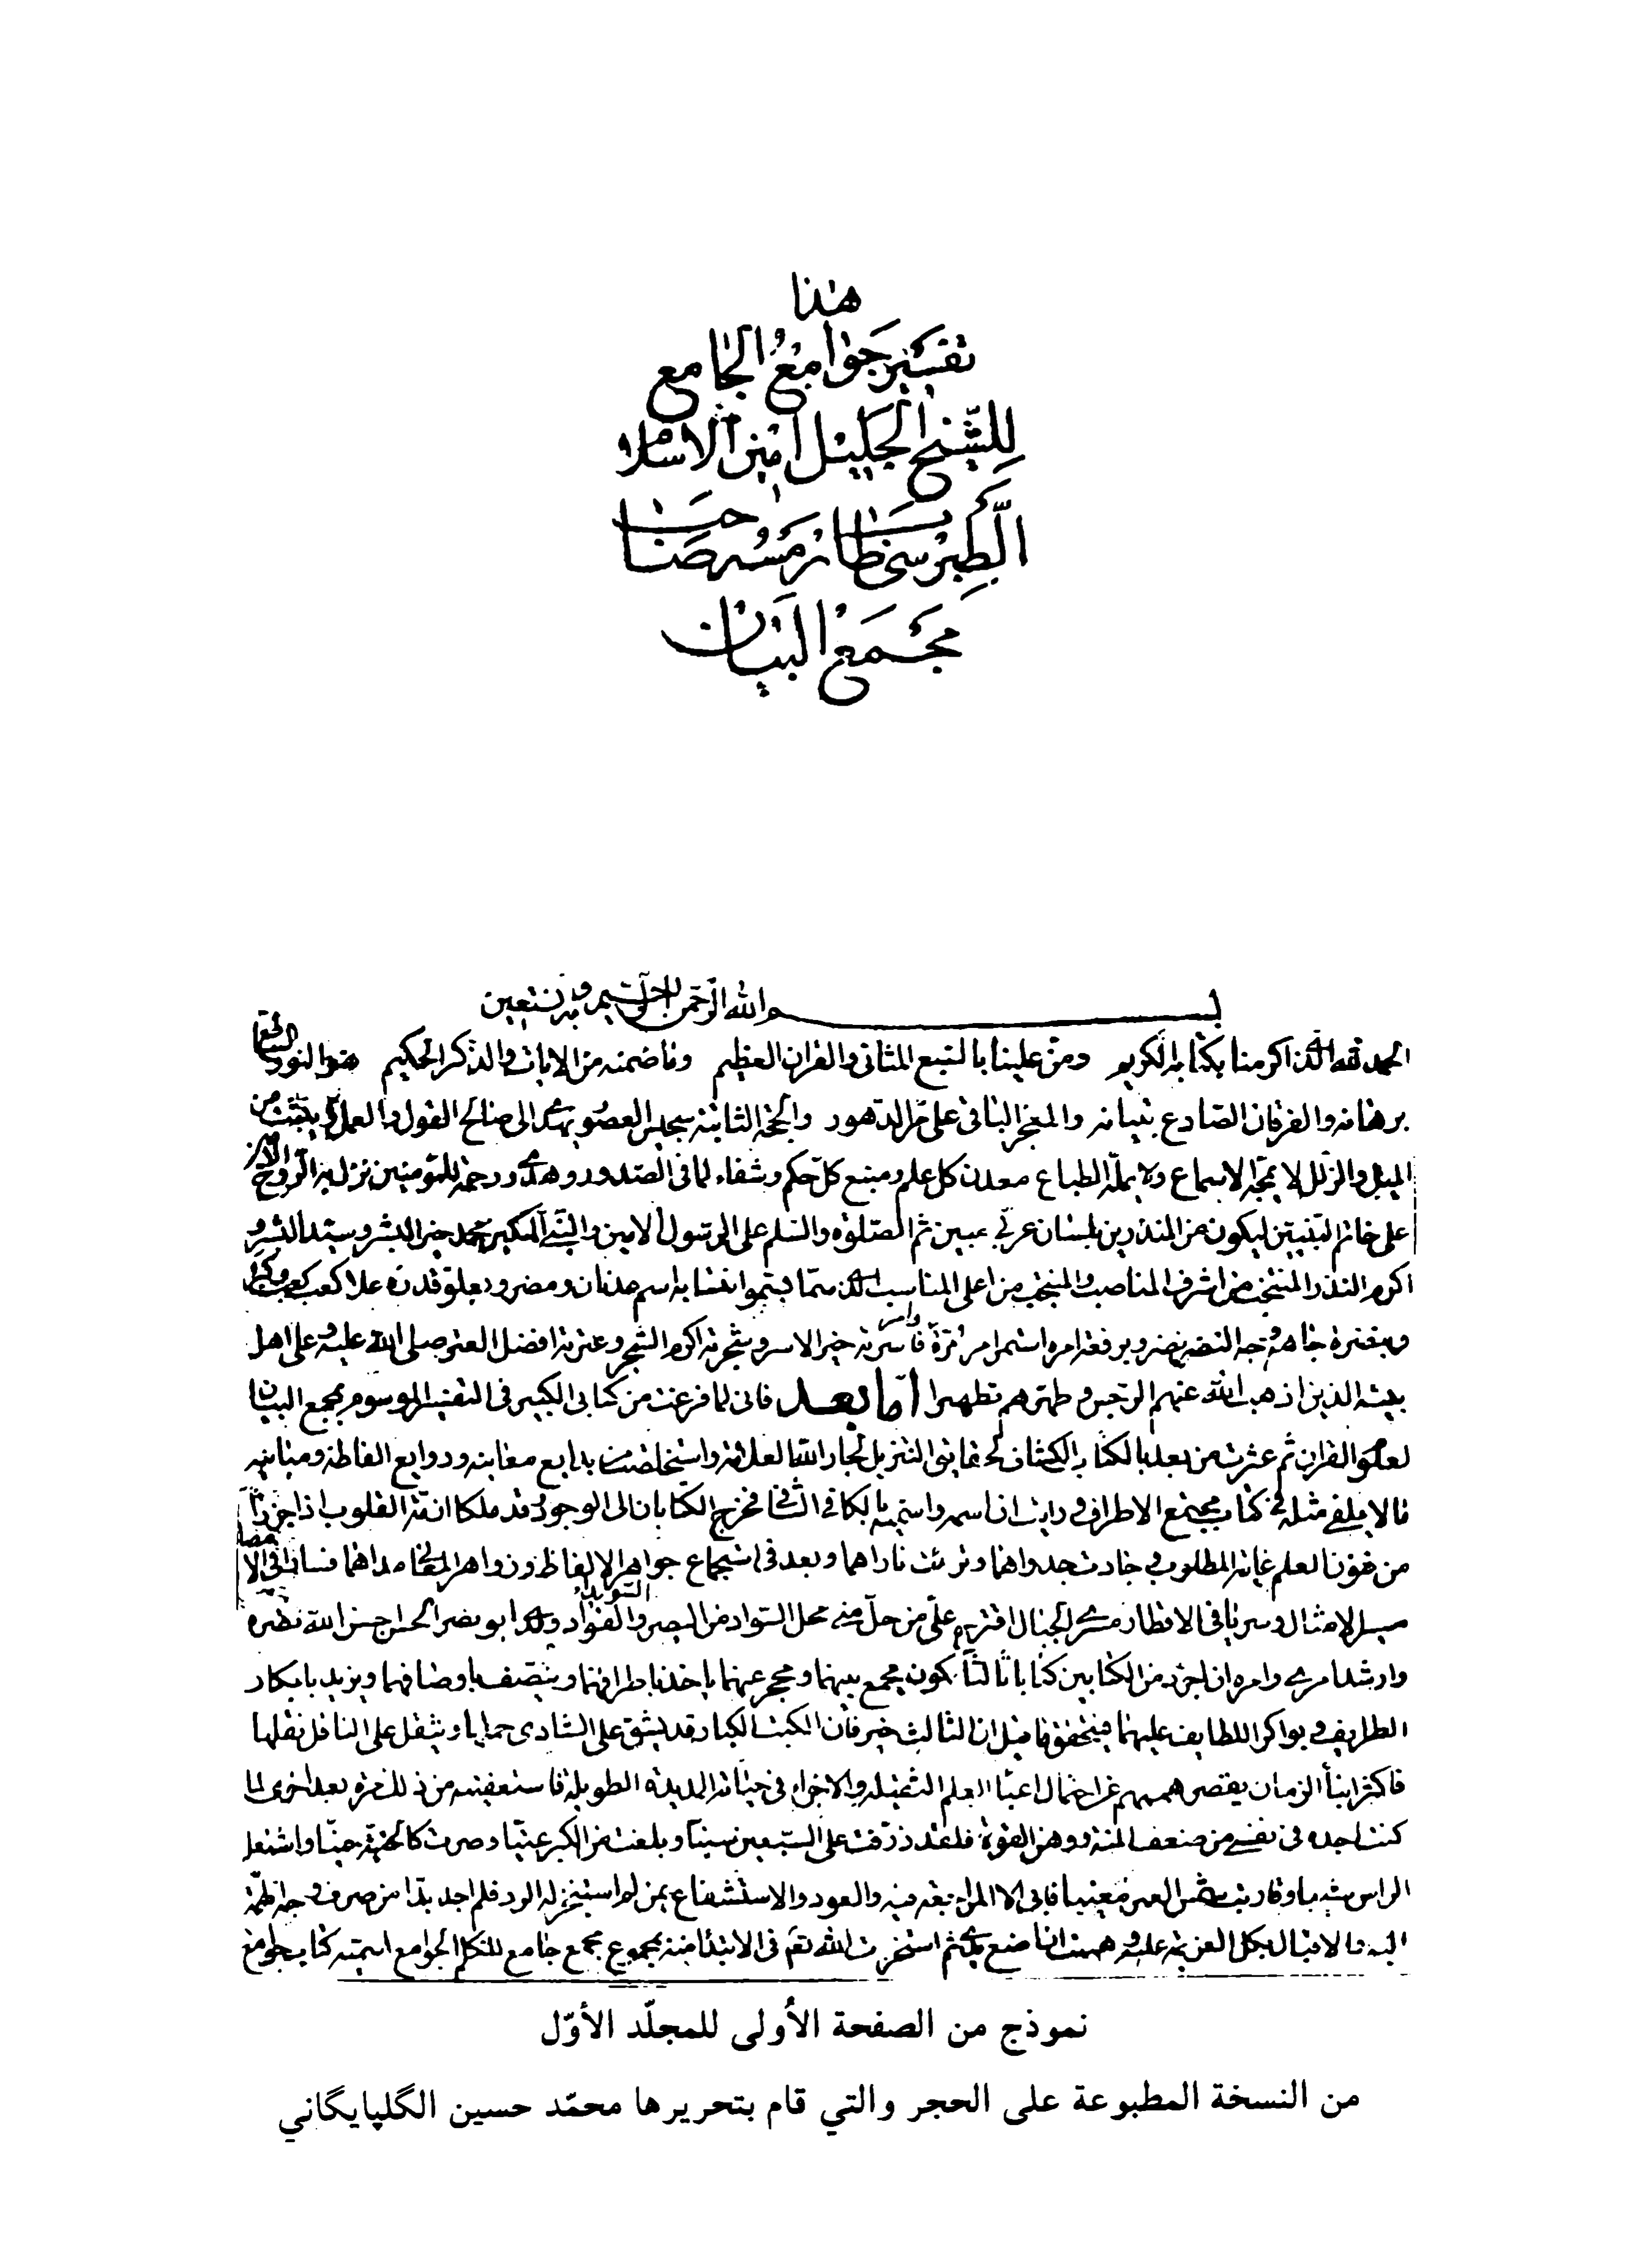 هذا
تفسير جوامع الجامع
للشيخ الجليل أمين الاسلام
الطبرسي طاب رمسه صاحب
مجمع البيان
بسم الله الرحمن الرحيم وبه نستعين
الحمد لله الذي اكرمنا بكتابه الكريم ومن علينا بالسبع المثاني والقران العظيم وما ضمنه من الايات والذكر الحكيم هو النور الساطع
برهانه والفرقان الصادع تبيانه والمعجز الباقي على مر الدهور والحجة الثابتة سجيس العصور يهدي الى صالح القول والعمل ويثبت من
الميل والزلل لا يمجه الاسماع ولا يمله الطباع معدن كل علم ومنبع كل حكم وشفاء لما في الصدور وهدى ورحمة للمؤمنين نزل به الروح الامين
على خاتم النبيين ليكون من المنذرين بلسان عربي مبين ثم الصلوة والسلم على الرسول الامين والنبي المكين محمد خير البشر وسيد البشر و
اكرم النذر المنتخب من اشرف المناصب والمنتجب من اعلى المناسب الذي سما بسمو انتسابه اسم عدنان ومضر وبعلو قدره علا كعب كعب
وبنضرة جاهه وجه النضر نضر وبرفعة امره استمر امر مرة فاسرته خير الاسر وشجرته اكرم الشجر وعترته افضل العتر صلى الله عليه وعلى اهل
بيته الذين اذهب الله عنهم الرجس وطهرهم تطهيرا اما بعد فاني لما فرغت من كتابي الكبير في التفسير الموسوم بمجمع البيان
لعلوم القران ثم عثرت من بعد بالكتاب الكشاف لحقايق التنزيل لجار الله العلامة واستخلصت من بدايع معانيه وروايع الفاظه ومبانيه
ما لا يلفى مثله في كتاب مجتمع الاطراف ورايت ان اسمه واسميه بالكافي الشافي فخرج الكتابان الى الوجود قد ملكا ازمة القلوب اذ احرزا
من فنون العلم غاية المطلوب وجادت جدواهما وتراءت ناراهما وبعد في استجماع جواهر الالفاظ وزواهر المعاني مداهما فسارا في الامصار
مسير الامثال وسريا في الاقطار مسرى الخيال اقترح علي من حل مني محل السواد من البصر والفؤاد ولدي ابو نصر الحسن احسن الله نصره
وارشد امري وامره ان اجرد من الكتابين كتابا ثالثا يكون مجمع بينهما ومحجر عينهما ياخذ باطرافهما ويتصف باوصافهما ويزيد بابكار
الطرايف وبواكر اللطايف عليهما فيتحقق ما قيل ان الثالث خير فان الكتب الكبار قد يشق على الشادي حملها ويثقل على الناقل نقلها
فاكثر ابناء الزمان يقصر هممهم عن احتمال اعباء العلم الثقيلة والاجراء في حلباته المديدة الطويلة فاستعفيته من ذلك مرة بعد اخرى لما
كنت اجده في نفسي من ضعف المنة ووهن القوة فلقد ذرفت على السبعين سنيا وبلغت من الكبر عتيا وصرت كالحنية حنيا واشتعل
الراس شيبا وقاربت شمس العمر مغيبا فابى الا المراجعة فيه والعود والاستشفاع بمن لم استجز له الرد فلم اجد بدا من صرف وجه الهمة
اليه والاقبال بكل العزيمة عليه وهممت ان اضع يدي ثم استخرت الله تعالى في الابتداء منه بمجموع مجمع جامع للكلم الجوامع اسميته كتاب جوامع
نموذج من الصفحة الأولى للمجلّد الأوّل
من النسخة المطبوعة على الحجر والتي قام بتحريرها محمّد حسين الگلپايگاني